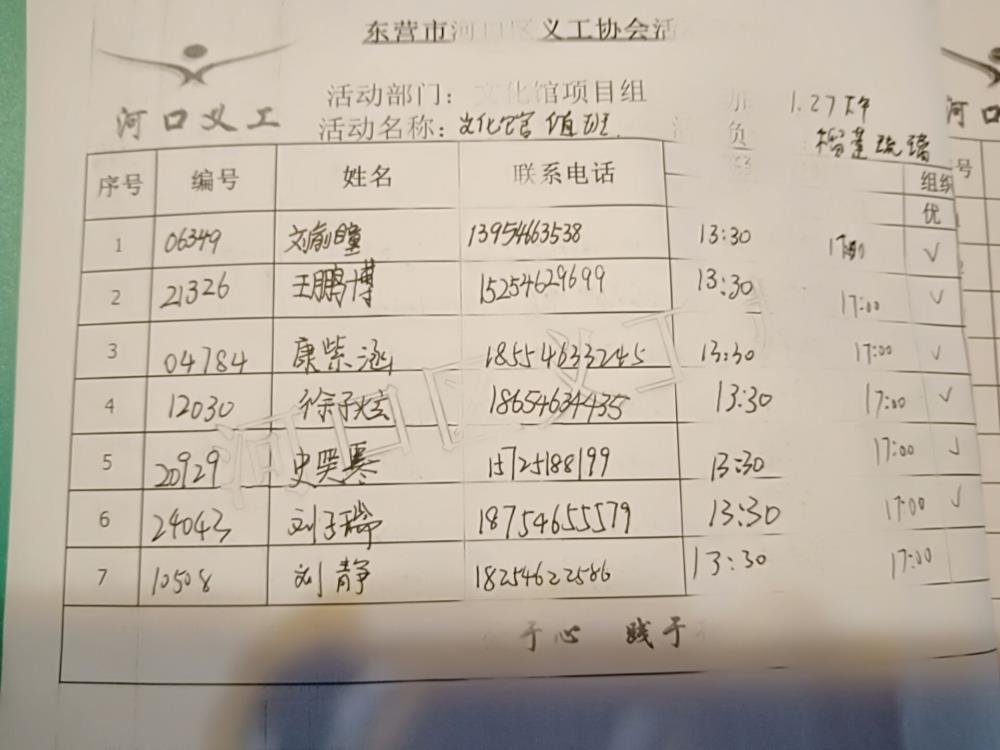 东营市河口区义工协会活
河口义工
活动部门：文化馆项目组
1.27下午
活动名称：文化馆值班
负 榴莲琉璃
序号 编号 姓名 联系电话 组织
优
1 06349 刘俞瞳 13954663538 13:30 17:00 √
2 21326 王鹏博 15254629699 13:30 17:00 √
3 04784 康紫涵 18554633245 13:30 17:00 √
4 12030 徐子炫 18654634435 13:30 17:00 √
5 20929 史笑寒 15725188199 13:30 17:00 √
6 24043 刘子瑞 18754655579 13:30 17:00 √
7 10508 刘静 18254622586 13:30 17:00
于心 践于
河口区义工
河口
号